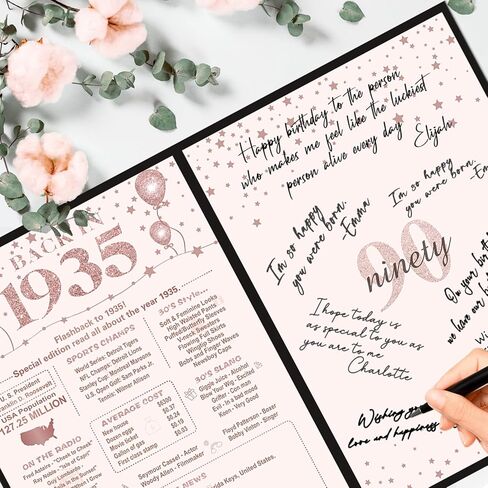 BACK IN
1935
Flashback to 1935!
Special edition read all about the year 1935.
U.S. President
Franklin D. Roosevelt
USA Population
127.25 MILLION
ON THE RADIO
Fred Astaire - "Cheek to Cheek"
Ray Noble - "Isle of Capri"
Guy Lombardo -
in the Sunset"
SPORTS CHAMPS
World Series: Detroit Tigers
NFL Champs: Detroit Lions
Stanley Cup: Montreal Maroons
U.S. Open Golf: Sam Parks Jr.
Tennis: Wilmer Allison
AVERAGE COST
New house
Dozen eggs $0.37
Movie ticket $0.24
Gallon of gas $0.19
First class stamp $0.3
Seymour Cassel - Actor
Woody Allen - Filmmaker
30's STYLE...
Soft & Feminine Looks
High Waisted Pants
Puffed/Butterfly Sleeves
V-neck Sweaters
Flaring Full Skirts
Winglip Shoes
Bobs and Finger Waves
Newsboy Caps
30'S SLANG
Alligator - Jitterbug
Blow Your Wig - Excited
Griffer - Con man
Evil - In a bad mood
Keen - Very good
Floyd Patterson - Boxer
Bobby Vinton - Singer
NEWS
Florida Keys, United States.
Happy birthday to the person
who makes me feel like the luckiest
person alive every day
Elijah
I'm so happy
you were born.
-Emma
I'm so happy
you were born.
90
ninety
I hope today is
as special to you as
you are to me
Charlotte
On your
we have
Wishing you
love and happiness